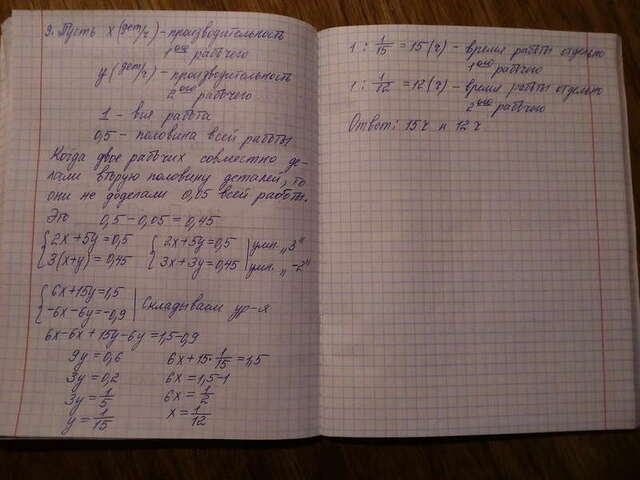 9. Пусть x (дет/ч) - производительность
1ого рабочего
y (дет/ч) - производительность
2ого рабочего
1 - вся работа
0,5 - половина всей работы
Когда двое рабочих совместно де-
лали вторую половину деталей, то
они не доделали 0,05 всей работы.
Это 0,5 - 0,05 = 0,45
{2x+5y=0,5 {2x+5y=0,5 | умн. „3"
{3(x+y)=0,45 {3x+3y=0,45 | умн. „-2"
{6x+15y=1,5
{-6x-6y=-0,9 | Складываем ур-я
6x-6x+15y-6y=1,5-0,9
9y=0,6 6x+15·1/15=1,5
3y=0,2 6x=1,5-1
3y=1/5 6x=1/2
y=1/15 x=1/12
1 : 1/15 = 15 (ч) - время работы отдельно
1ого рабочего
1 : 1/12 = 12 (ч) - время работы отдельно
2ого рабочего
Ответ: 15 ч и 12 ч